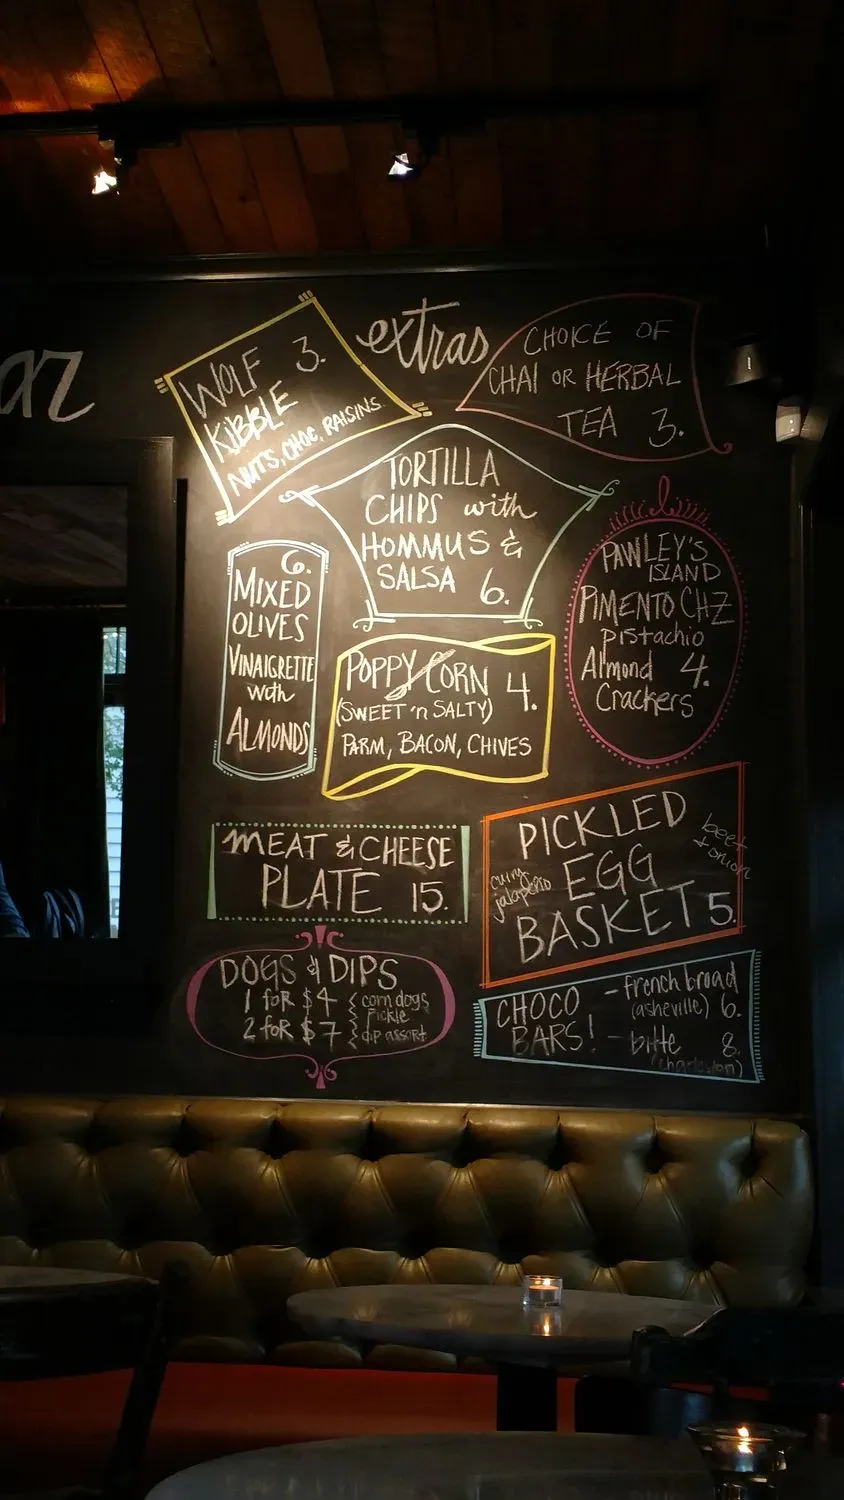 az
extras
WOLF 3.
KIBBLE
NUTS, CHOC, RAISINS
CHOICE OF
CHAI OR HERBAL
TEA 3.
TORTILLA
CHIPS with
HOMMUS &
SALSA 6.
6.
MIXED
OLIVES
VINAIGRETTE
with
ALMONDS
PAWLEY'S
ISLAND
PIMENTO CHZ
pistachio
Almond 4.
Crackers
POPPY CORN 4.
(SWEET 'n SALTY)
PARM, BACON, CHIVES
MEAT & CHEESE
PLATE 15.
PICKLED
EGG
BASKET 5.
beet
+ onion
curry
jalapeño
DOGS & DIPS
1 for $4 { corn dogs
pickle
2 for $7 { dip assort
CHOCO
BARS!
- french broad
(asheville) 6.
- bitte 8.
(charleston)